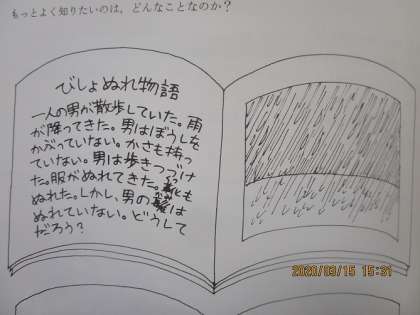 もっとよく知りたいのは、どんなことなのか？
びしょぬれ物語
一人の男が散歩していた。雨
が降ってきた。男はぼうしを
かぶっていない。かさも持っ
ていない。男は歩きつづけ
た。服がぬれてきた。靴も
ぬれた。しかし、男の髪は
ぬれていない。どうして
だろう？
2020/09/15 15:31